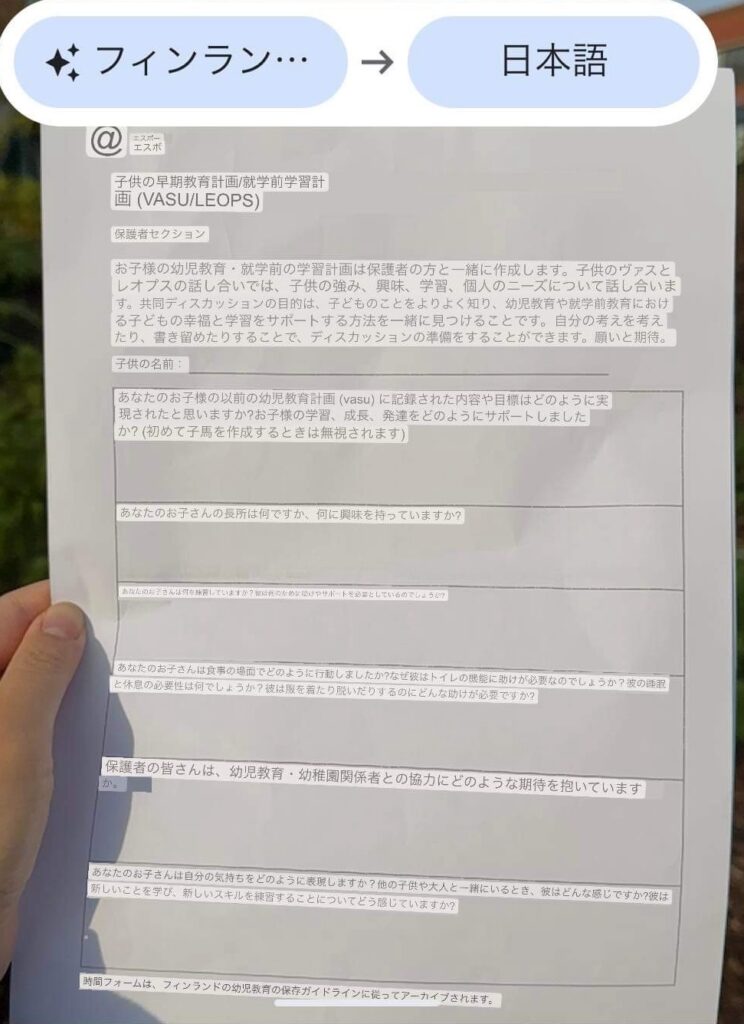 フィンラン…
→
日本語
@
エスポー
エスポ
子供の早期教育計画/就学前学習計
画 (VASU/LEOPS)
保護者セクション
お子様の幼児教育・就学前の学習計画は保護者の方と一緒に作成します。子供のヴァスと
レオプスの話し合いでは、子供の強み、興味、学習、個人のニーズについて話し合いま
す。共同ディスカッションの目的は、子どものことをよりよく知り、幼児教育や就学前教育におけ
る子どもの幸福と学習をサポートする方法を一緒に見つけることです。自分の考えを考え
たり、書き留めたりすることで、ディスカッションの準備をすることができます。願いと期待。
子供の名前：
あなたのお子様の以前の幼児教育計画 (vasu) に記録された内容や目標はどのように実
現されたと思いますか?お子様の学習、成長、発達をどのようにサポートしました
か? (初めて子馬を作成するときは無視されます)
あなたのお子さんの長所は何ですか、何に興味を持っていますか?
あなたのお子さんは何を練習していますか？彼は何のために助けやサポートを必要としているのでしょうか?
あなたのお子さんは食事の場面でどのように行動しましたか?なぜ彼はトイレの機能に助けが必要なのでしょうか？彼の睡眠
と休息の必要性は何でしょうか？彼は服を着たり脱いだりするのにどんな助けが必要ですか?
保護者の皆さんは、幼児教育・幼稚園関係者との協力にどのような期待を抱いています
か。
あなたのお子さんは自分の気持ちをどのように表現しますか？他の子供や大人と一緒にいるとき、彼はどんな感じですか?彼は
新しいことを学び、新しいスキルを練習することについてどう感じていますか?
時間フォームは、フィンランドの幼児教育の保存ガイドラインに従ってアーカイブされます。